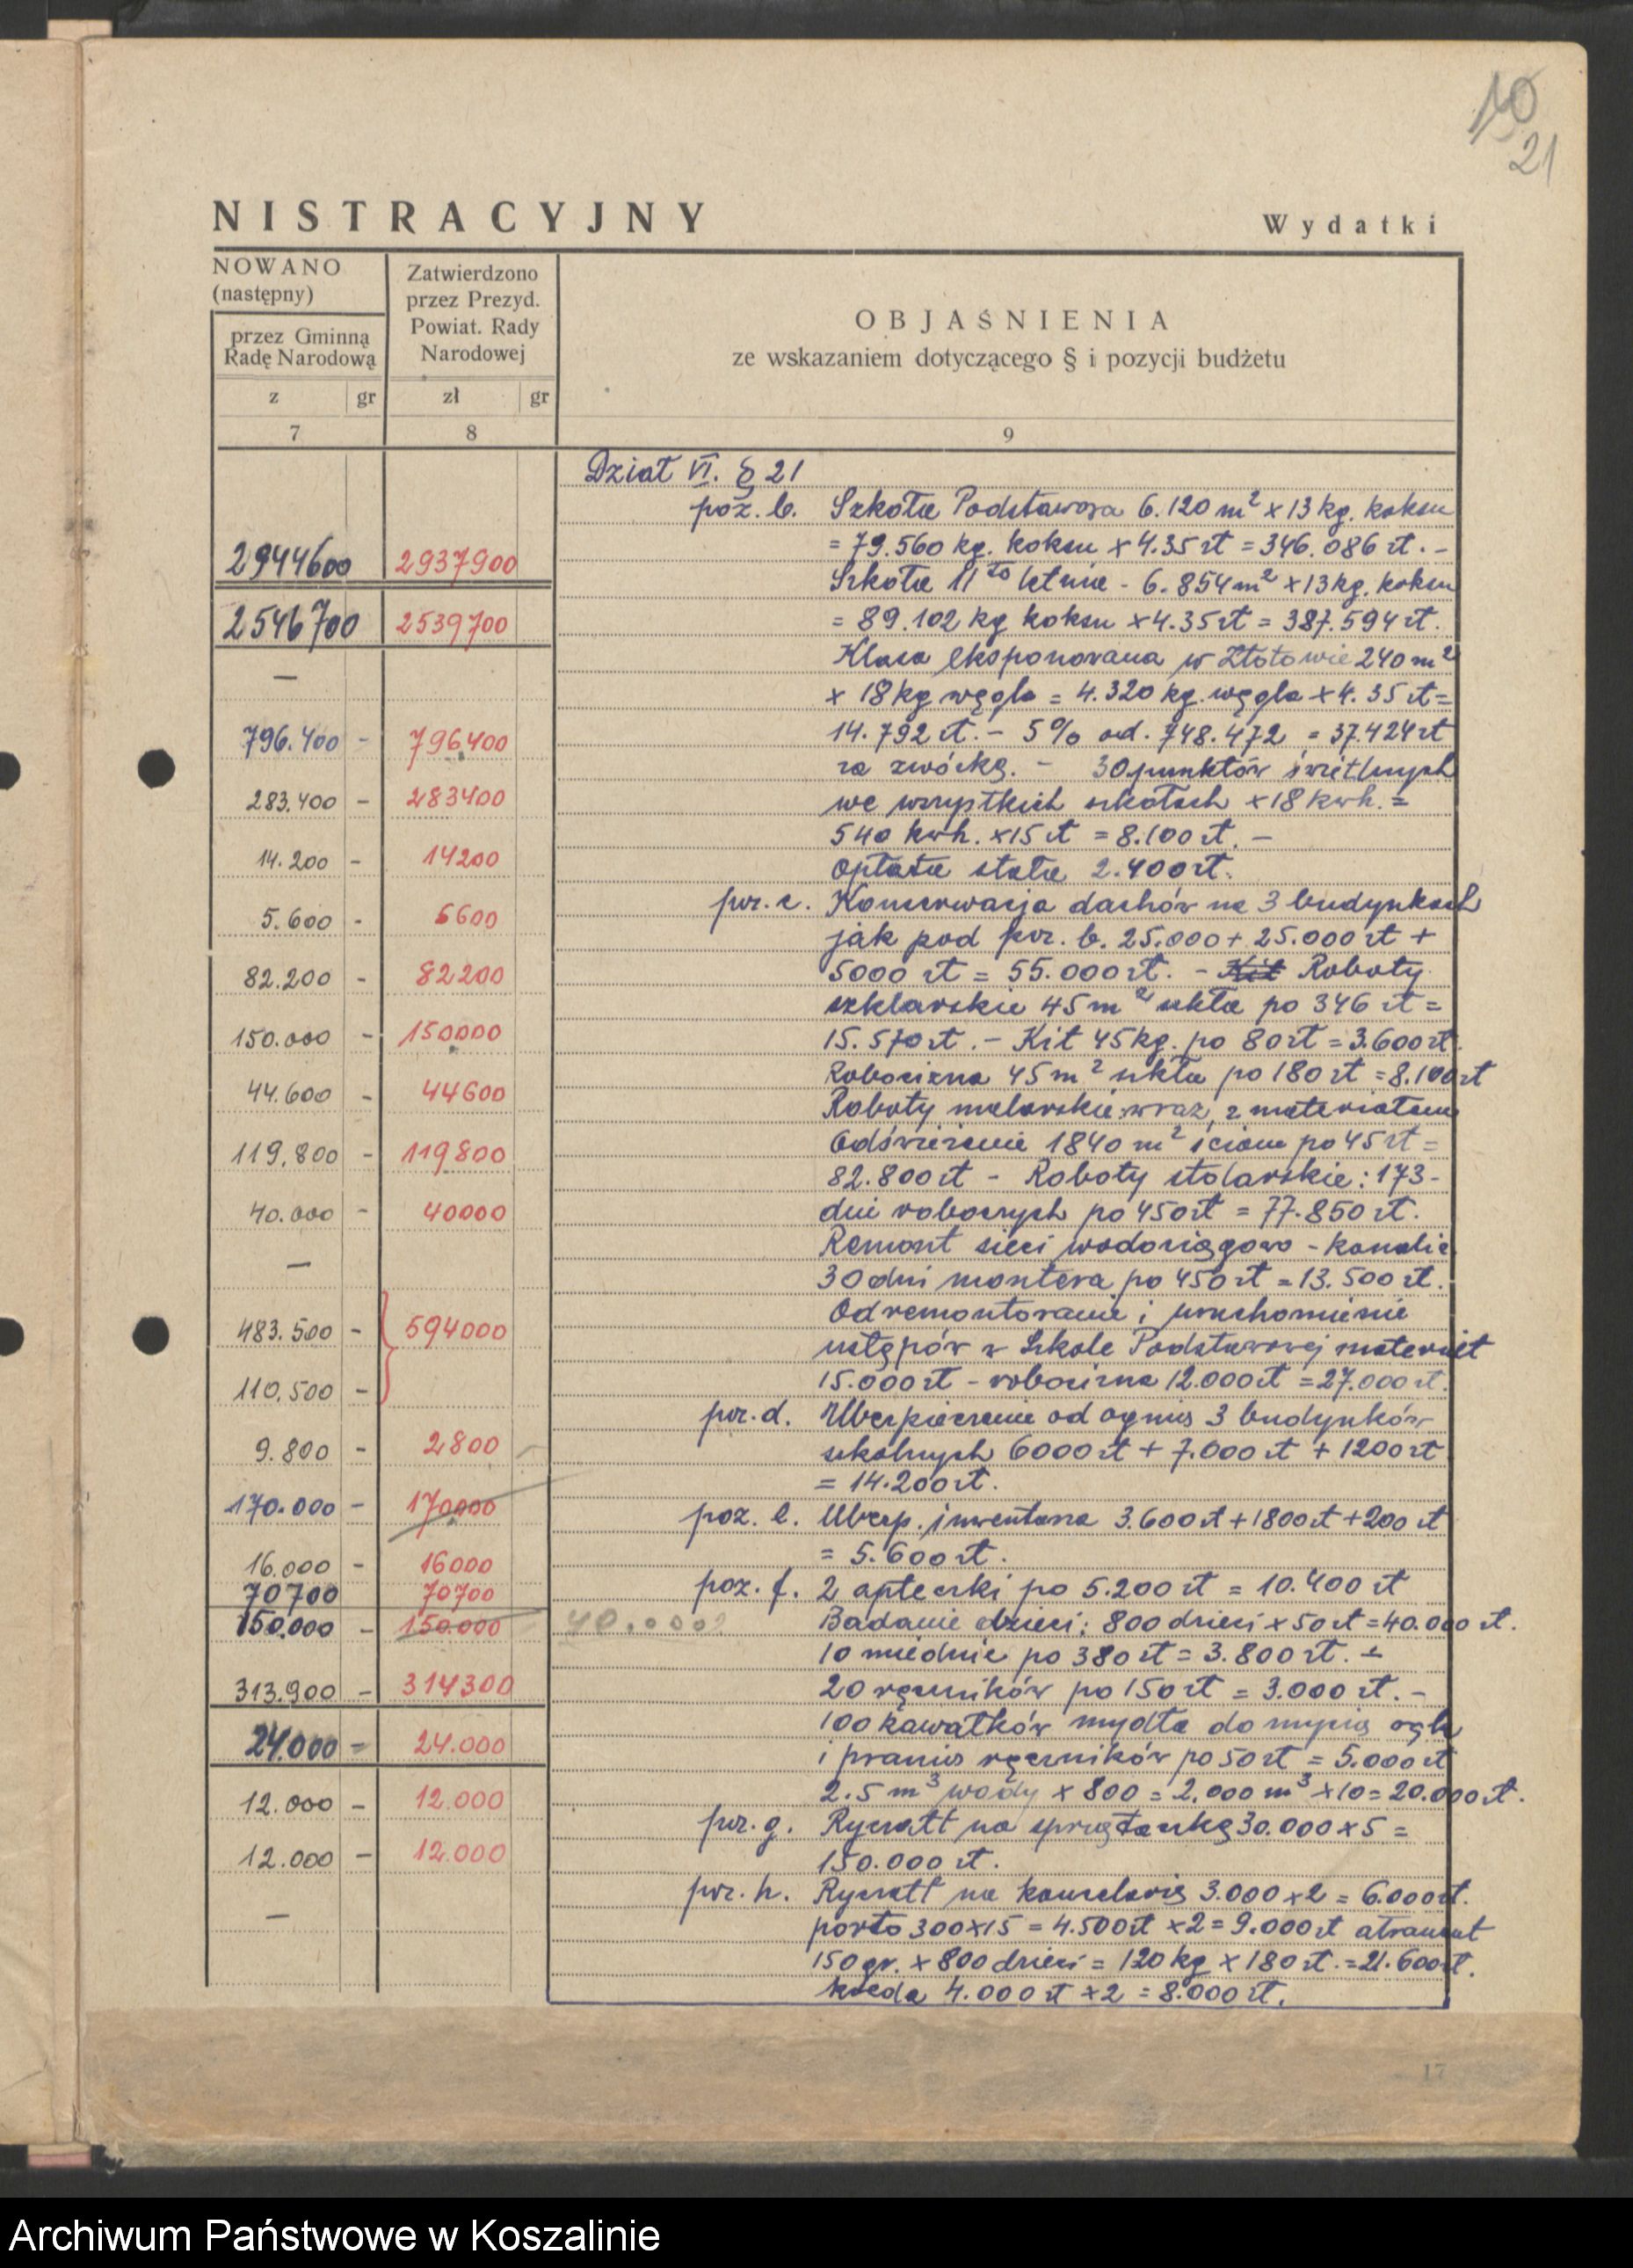 10
21
NISTRACYJNY
Wydatki
NOWANO
(następny)
przez Gminną
Radę Narodową
z gr
7
Zatwierdzono
przez Prezyd.
Powiat. Rady
Narodowej
zł gr
8
OBJAŚNIENIA
ze wskazaniem dotyczącego § i pozycji budżetu
9
2944600 2937900
2546700 2539700
—
796.400 - 796400
283.400 - 283400
14.200 - 14200
5.600 - 5600
82.200 - 82200
150.000 - 150000
44.600 - 44600
119.800 - 119800
40.000 - 40000
—
483.500 - 594000
110.500 -
9.800 - 2800
170.000 - 170000
16.000 - 16000
70700 70700
150.000 - 150.000 40.000
313.900 - 314300
24.000 - 24.000
12.000 - 12.000
12.000 - 12.000
—
Dział VI. § 21
poz. b. Szkoła Podstawowa 6.120 m² x 13 kg. koksu
= 79.560 kg. koksu x 4.35 zł = 346.086 zł. -
Szkoła 11to letnia - 6.854 m² x 13 kg. koksu
= 89.102 kg koksu x 4.35 zł = 387.594 zł.
Klasa eksponowana w Złotowie 240 m²
x 18 kg węgla = 4.320 kg. węgla x 4.35 zł =
14.792 zł. - 5% od. 748.472 = 37.424 zł
za zwózkę. - 30 punktów świetlnych
we wszystkich szkołach x 18 kwh. =
540 kwh. x 15 zł = 8.100 zł. -
opłata stała 2.400 zł.
poz. c. Konserwacja dachów na 3 budynkach
jak pod poz. b. 25.000 + 25.000 zł +
5000 zł = 55.000 zł. - Kit Roboty
szklarskie 45 m² szkła po 346 zł =
15.570 zł. - Kit 45 kg. po 80 zł = 3.600 zł.
Robocizna 45 m² szkła po 180 zł = 8.100 zł
Roboty malarskie wraz z materiałem
Odświeżenie 1840 m² ścian po 45 zł =
82.800 zł - Roboty stolarskie: 173-
dni roboczych po 450 zł = 77.850 zł.
Remont sieci wodociągowo - kanaliz.
30 dni montera po 450 zł = 13.500 zł.
Odremontowanie i uruchomienie
ustępów w Szkole Podstawowej materiał
15.000 zł - robocizna 12.000 zł = 27.000 zł.
poz. d. Ubezpieczenie od ognia 3 budynków
szkolnych 6000 zł + 7.000 zł + 1200 zł
= 14.200 zł.
poz. e. Ubezp. inwentarza 3.600 zł + 1800 zł + 200 zł
= 5.600 zł.
poz. f. 2 apteczki po 5.200 zł = 10.400 zł
Badanie dzieci: 800 dzieci x 50 zł = 40.000 zł.
10 miednic po 380 zł = 3.800 zł. -
20 ręczników po 150 zł = 3.000 zł. -
100 kawałków mydła do mycia rąk
i prania ręczników po 50 zł = 5.000 zł
2.5 m³ wody x 800 = 2.000 m³ x 10 = 20.000 zł.
poz. g. Ryczałt na sprzątaczkę 30.000 x 5 =
150.000 zł.
poz. h. Ryczałt na kancelarię 3.000 x 2 = 6.000 zł.
porto 300 x 15 = 4.500 zł x 2 = 9.000 zł atrament
150 gr. x 800 dzieci = 120 kg x 180 zł. = 21.600 zł.
kreda 4.000 zł x 2 = 8.000 zł.
17
Archiwum Państwowe w Koszalinie